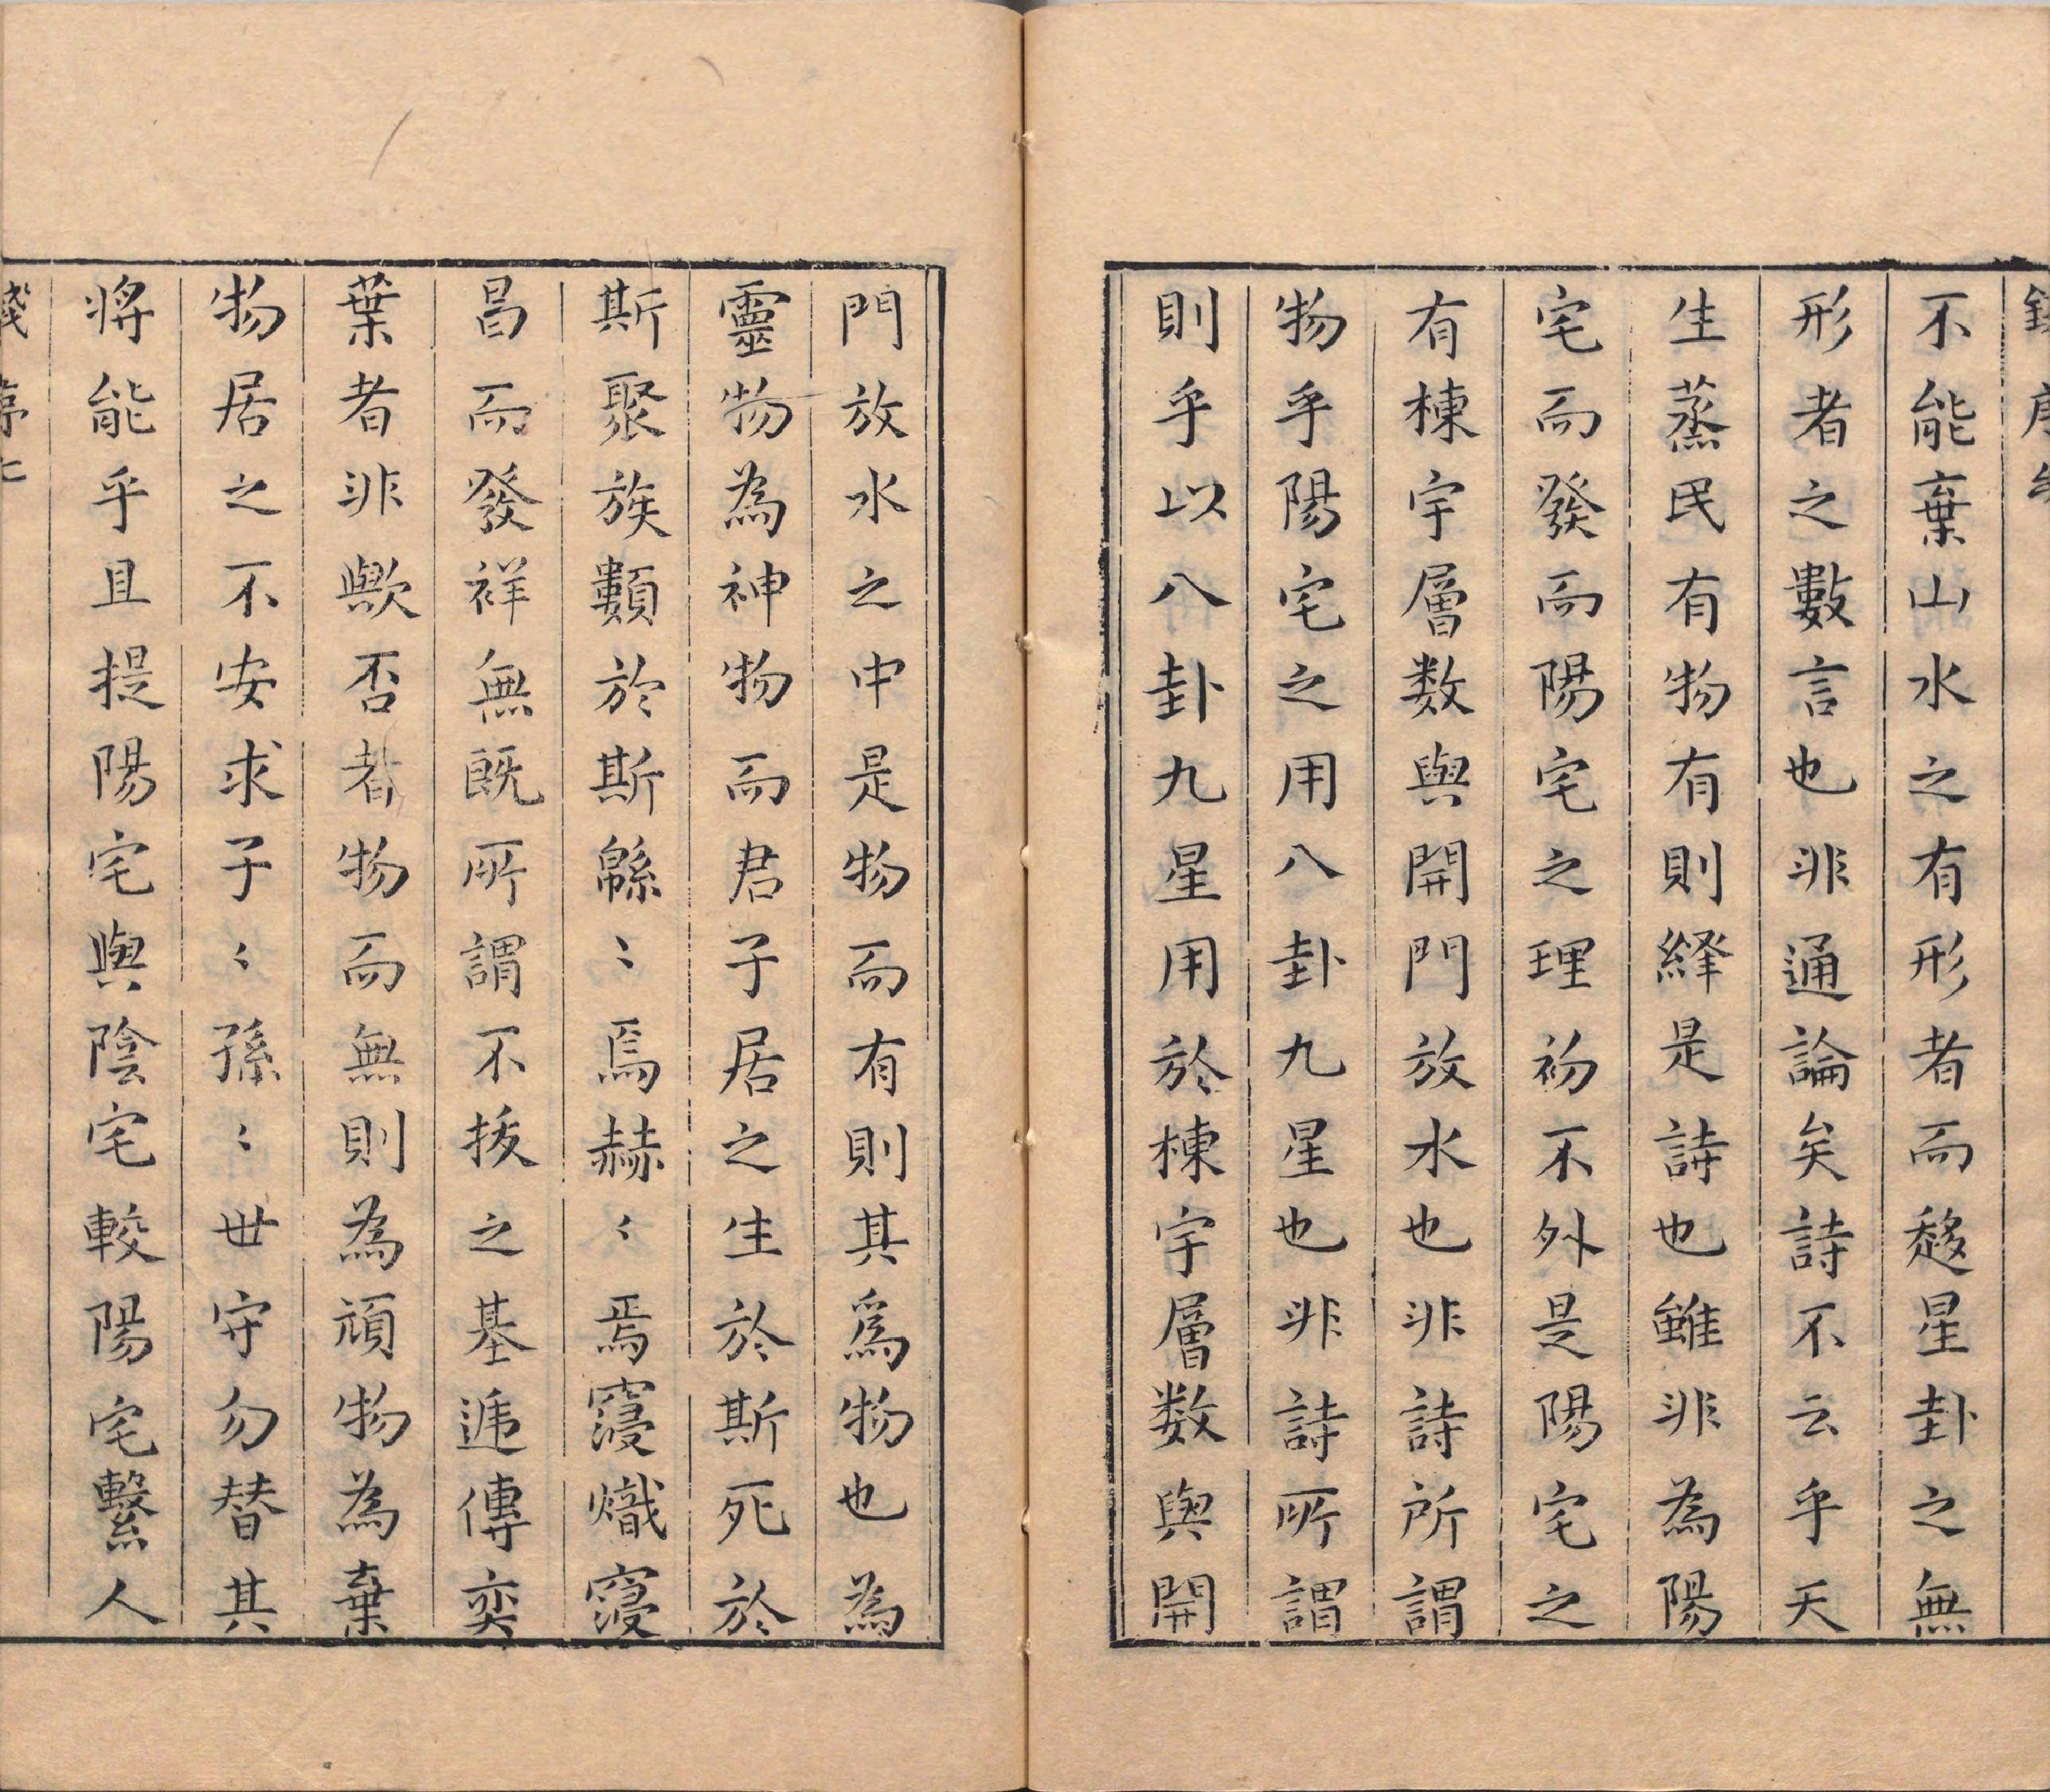 不能棄山水之有形者而趍星卦之無
形者之數言也非通論矣詩不云乎天
生蒸民有物有則繹是詩也雖非為陽
宅而發而陽宅之理初不外是陽宅之
有棟宇層数與開門放水也非詩所謂
物乎陽宅之用八卦九星也非詩所謂
則乎以八卦九星用於棟宇層数與開
門放水之中是物而有則其爲物也為
靈物為神物而君子居之生於斯死於
斯聚族類於斯緜〻焉赫〻焉寖熾寖
昌而發祥無既所謂不拔之基递傳奕
葉者非歟否者物而無則為頑物為棄
物居之不安求子〻孫〻世守勿替其
將能乎且提陽宅與陰宅較陽宅繫人